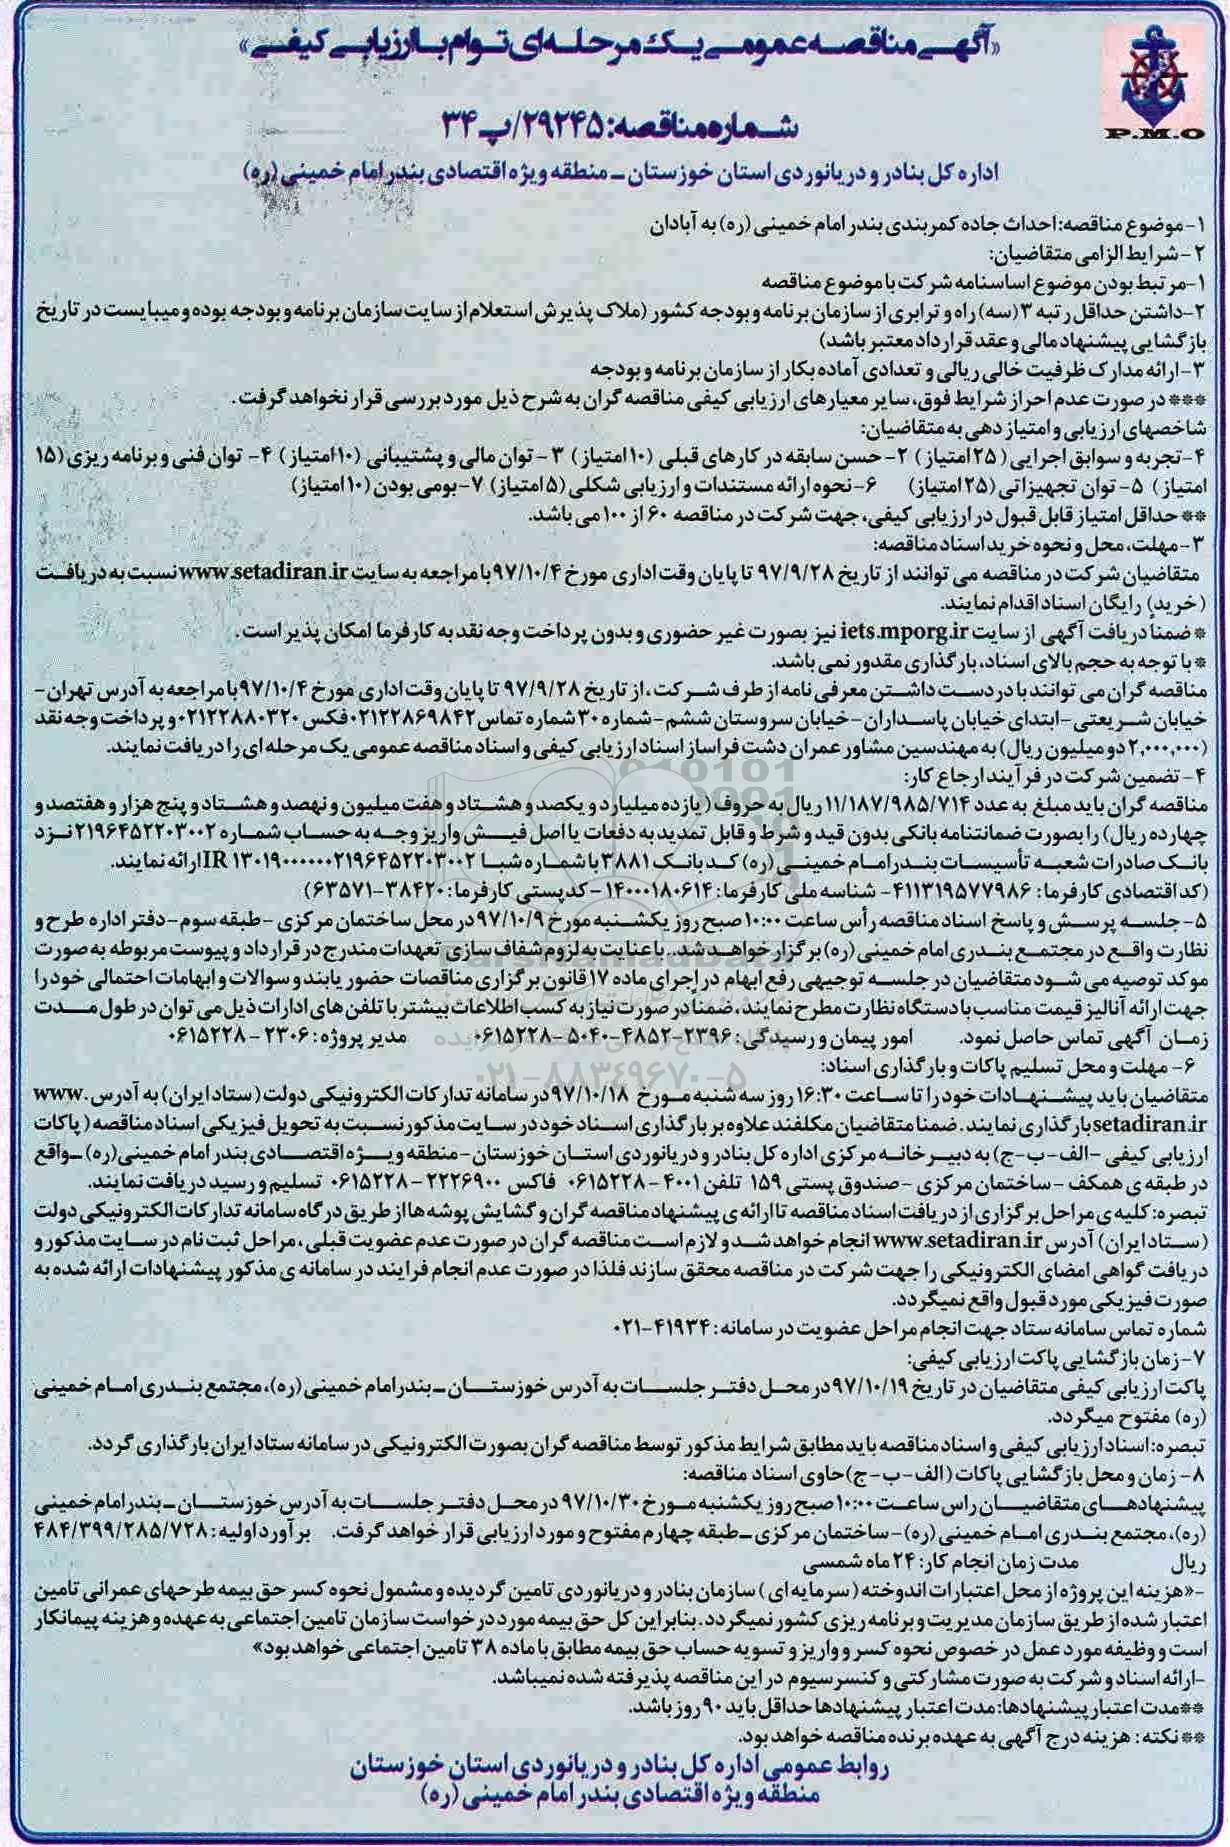 «آگهی مناقصه عمومی یک مرحله‌ای توام با ارزیابی کیفی»
P.M.O
شماره مناقصه: ۲۹۲۴۵/پ ۳۴
اداره کل بنادر و دریانوردی استان خوزستان ـ منطقه ویژه اقتصادی بندر امام خمینی (ره)
۱-موضوع مناقصه: احداث جاده کمربندی بندر امام خمینی (ره) به آبادان
۲-شرایط الزامی متقاضیان:
۱-مرتبط بودن موضوع اساسنامه شرکت با موضوع مناقصه
۲-داشتن حداقل رتبه ۳ (سه) راه و ترابری از سازمان برنامه و بودجه کشور (ملاک پذیرش استعلام از سایت سازمان برنامه و بودجه بوده و میبایست در تاریخ
بازگشایی پیشنهاد مالی و عقد قرارداد معتبر باشد)
۳-ارائه مدارک ظرفیت خالی ریالی و تعدادی آماده بکار از سازمان برنامه و بودجه
*** در صورت عدم احراز شرایط فوق، سایر معیارهای ارزیابی کیفی مناقصه گران به شرح ذیل مورد بررسی قرار نخواهد گرفت.
شاخصهای ارزیابی و امتیاز دهی به متقاضیان:
۴-تجربه و سوابق اجرایی (۲۵ امتیاز) ۲-حسن سابقه در کارهای قبلی (۱۰ امتیاز) ۳- توان مالی و پشتیبانی (۱۰ امتیاز) ۴- توان فنی و برنامه ریزی (۱۵
امتیاز) ۵- توان تجهیزاتی (۲۵ امتیاز) ۶-نحوه ارائه مستندات و ارزیابی شکلی (۵ امتیاز) ۷-بومی بودن (۱۰ امتیاز)
** حداقل امتیاز قابل قبول در ارزیابی کیفی، جهت شرکت در مناقصه ۶۰ از ۱۰۰ می باشد.
۳-مهلت، محل و نحوه خرید اسناد مناقصه:
متقاضیان شرکت در مناقصه می توانند از تاریخ ۹۷/۹/۲۸ تا پایان وقت اداری مورخ ۹۷/۱۰/۴ با مراجعه به سایت www.setadiran.ir نسبت به دریافت
(خرید) رایگان اسناد اقدام نمایند.
* ضمناً دریافت آگهی از سایت iets.mporg.ir نیز بصورت غیر حضوری و بدون پرداخت وجه نقد به کارفرما امکان پذیر است.
* با توجه به حجم بالای اسناد، بارگذاری مقدور نمی باشد.
مناقصه گران می توانند با در دست داشتن معرفی نامه از طرف شرکت، از تاریخ ۹۷/۹/۲۸ تا پایان وقت اداری مورخ ۹۷/۱۰/۴ با مراجعه به آدرس تهران-
خیابان شریعتی-ابتدای خیابان پاسداران-خیابان سروستان ششم-شماره ۳۰ شماره تماس ۰۲۱۲۲۸۶۹۸۴۲ فکس ۰۲۱۲۲۸۸۰۳۲۰ و پرداخت وجه نقد
(۲,۰۰۰,۰۰۰ دو میلیون ریال) به مهندسین مشاور عمران دشت فراساز اسناد ارزیابی کیفی و اسناد مناقصه عمومی یک مرحله ای را دریافت نمایند.
۴- تضمین شرکت در فرآیند ارجاع کار:
مناقصه گران باید مبلغ به عدد ۱۱/۱۸۷/۹۸۵/۷۱۴ ریال به حروف (یازده میلیارد و یکصد و هشتاد و هفت میلیون و نهصد و هشتاد و پنج هزار و هفتصد و
چهارده ریال) را بصورت ضمانتنامه بانکی بدون قید و شرط و قابل تمدید به دفعات یا اصل فیش واریز وجه به حساب شماره ۲۱۹۶۴۵۲۲۰۳۰۰۲ نزد
بانک صادرات شعبه تأسیسات بندر امام خمینی (ره) کد بانک ۳۸۸۱ با شماره شبا IR ۱۳۰۱۹۰۰۰۰۰۰۲۱۹۶۴۵۲۲۰۳۰۰۲ ارائه نمایند.
(کد اقتصادی کارفرما: ۴۱۱۳۱۹۵۷۷۹۸۶- شناسه ملی کارفرما: ۱۴۰۰۰۱۸۰۶۱۴ -کدپستی کارفرما: ۳۸۴۲۰-۶۳۵۷۱)
۵-جلسه پرسش و پاسخ اسناد مناقصه رأس ساعت ۱۰:۰۰ صبح روز یکشنبه مورخ ۹۷/۱۰/۹ در محل ساختمان مرکزی -طبقه سوم-دفتر اداره طرح و
نظارت واقع در مجتمع بندری امام خمینی (ره) برگزار خواهد شد. با عنایت به لزوم شفاف سازی تعهدات مندرج در قرارداد و پیوست مربوطه به صورت
موکد توصیه می شود متقاضیان در جلسه توجیهی رفع ابهام در اجرای ماده ۱۷ قانون برگزاری مناقصات حضور یابند و سوالات و ابهامات احتمالی خود را
جهت ارائه آنالیز قیمت مناسب با دستگاه نظارت مطرح نمایند، ضمنا در صورت نیاز به کسب اطلاعات بیشتر با تلفن های ادارات ذیل می توان در طول مدت
زمان آگهی تماس حاصل نمود. امور پیمان و رسیدگی: ۲۳۹۶-۴۸۵۲-۵۰۴۰-۰۶۱۵۲۲۸ مدیر پروژه: ۲۳۰۶-۰۶۱۵۲۲۸
۰۲۱-۸۸۳۴۹۶۷۰-۵
۶- مهلت و محل تسلیم پاکات و بارگذاری اسناد:
متقاضیان باید پیشنهادات خود را تا ساعت ۱۶:۳۰ روز سه شنبه مورخ ۹۷/۱۰/۱۸ در سامانه تدارکات الکترونیکی دولت (ستاد ایران) به آدرس www.
setadiran.ir بارگذاری نمایند. ضمنا متقاضیان مکلفند علاوه بر بارگذاری اسناد خود در سایت مذکور نسبت به تحویل فیزیکی اسناد مناقصه (پاکات
ارزیابی کیفی -الف-ب-ج) به دبیرخانه مرکزی اداره کل بنادر و دریانوردی استان خوزستان-منطقه ویژه اقتصادی بندر امام خمینی (ره) -واقع
در طبقه ی همکف -ساختمان مرکزی -صندوق پستی ۱۵۹ تلفن ۴۰۰۱-۰۶۱۵۲۲۸ فاکس ۲۲۲۶۹۰۰-۰۶۱۵۲۲۸ تسلیم و رسید دریافت نمایند.
تبصره: کلیه ی مراحل برگزاری از دریافت اسناد مناقصه تا ارائه ی پیشنهاد مناقصه گران و گشایش پوشه ها از طریق درگاه سامانه تدارکات الکترونیکی دولت
(ستاد ایران) آدرس www.setadiran.ir انجام خواهد شد و لازم است مناقصه گران در صورت عدم عضویت قبلی، مراحل ثبت نام در سایت مذکور و
دریافت گواهی امضای الکترونیکی را جهت شرکت در مناقصه محقق سازند فلذا در صورت عدم انجام فرایند در سامانه ی مذکور پیشنهادات ارائه شده به
صورت فیزیکی مورد قبول واقع نمیگردد.
شماره تماس سامانه ستاد جهت انجام مراحل عضویت در سامانه: ۴۱۹۳۴-۰۲۱
۷-زمان بازگشایی پاکت ارزیابی کیفی:
پاکت ارزیابی کیفی متقاضیان در تاریخ ۹۷/۱۰/۱۹ در محل دفتر جلسات به آدرس خوزستان ـ بندر امام خمینی (ره)، مجتمع بندری امام خمینی
(ره) مفتوح میگردد.
تبصره: اسناد ارزیابی کیفی و اسناد مناقصه باید مطابق شرایط مذکور توسط مناقصه گران بصورت الکترونیکی در سامانه ستاد ایران بارگذاری گردد.
۸- زمان و محل بازگشایی پاکات (الف-ب-ج) حاوی اسناد مناقصه:
پیشنهادهای متقاضیان راس ساعت ۱۰:۰۰ صبح روز یکشنبه مورخ ۹۷/۱۰/۳۰ در محل دفتر جلسات به آدرس خوزستان ـ بندر امام خمینی
(ره)، مجتمع بندری امام خمینی (ره)-ساختمان مرکزی -طبقه چهارم مفتوح و مورد ارزیابی قرار خواهد گرفت. برآورد اولیه: ۴۸۴/۳۹۹/۲۸۵/۷۲۸
ریال مدت زمان انجام کار: ۲۴ ماه شمسی
-«هزینه این پروژه از محل اعتبارات اندوخته (سرمایه ای) سازمان بنادر و دریانوردی تامین گردیده و مشمول نحوه کسر حق بیمه طرحهای عمرانی تامین
اعتبار شده از طریق سازمان مدیریت و برنامه ریزی کشور نمیگردد. بنابراین کل حق بیمه مورد درخواست سازمان تامین اجتماعی به عهده و هزینه پیمانکار
است و وظیفه مورد عمل در خصوص نحوه کسر و واریز و تسویه حساب حق بیمه مطابق با ماده ۳۸ تامین اجتماعی خواهد بود»
-ارائه اسناد و شرکت به صورت مشارکتی و کنسرسیوم در این مناقصه پذیرفته شده نمیباشد.
**مدت اعتبار پیشنهادها: مدت اعتبار پیشنهادها حداقل باید ۹۰ روز باشد.
** نکته: هزینه درج آگهی به عهده برنده مناقصه خواهد بود.
روابط عمومی اداره کل بنادر و دریانوردی استان خوزستان
منطقه ویژه اقتصادی بندر امام خمینی (ره)